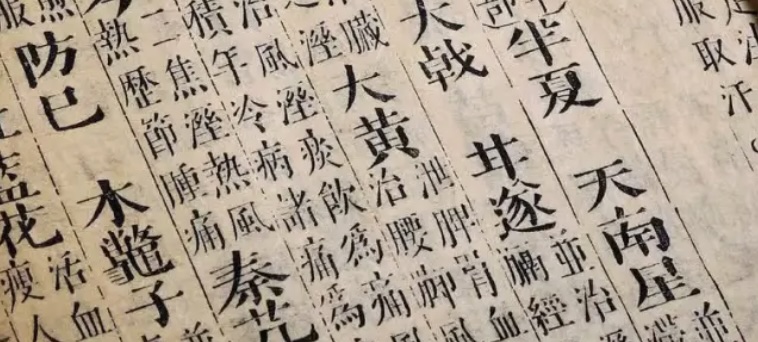 服取汗。
部半夏 天南星 並
大戟 甘遂 並治
膈經
臟大黄 泄脾胃血
治腰脚
治風溼痰飲為痛
積午冷病諸痛為
焦溼熱風
熱歷節腫痛 秦艽
防巳 木鼈子
花 活血
瘦人